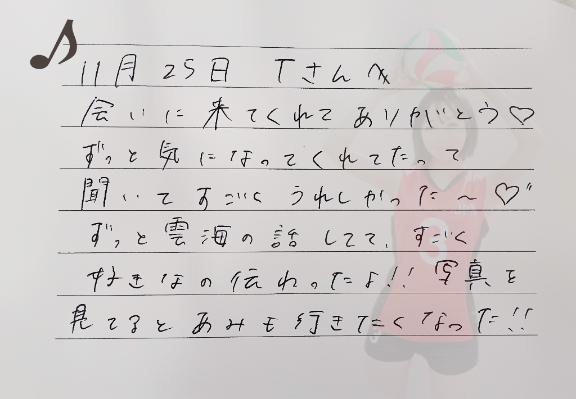 11月25日 Tさんへ
会いに来てくれてありがとう♡
ずっと気になってくれてたって
聞いてすごくうれしかった〜♡
ずっと雲海の話してて、すごく
好きなの伝わったよ!! 写真を
見てるとあみも行きたくなった!!